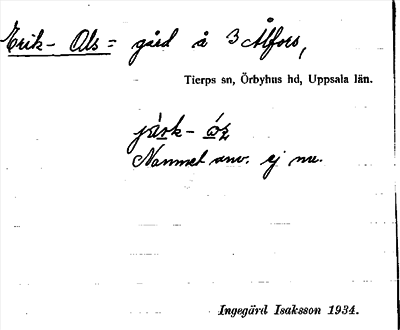 Erik-Ols = gård å 3 Ålfors,
Tierps sn, Örbyhus hd, Uppsala län.
Namnet anv. ej nu.
Ingegärd Isaksson 1934.